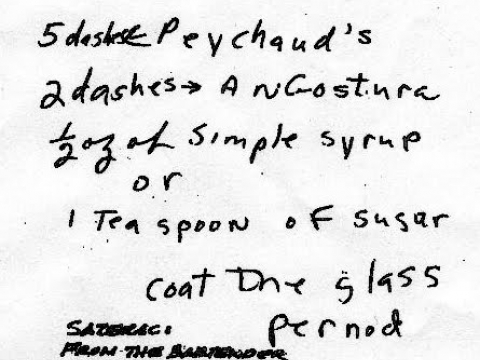 5 dashes Peychaud's
2 dashes → Angostura
1/2 oz of simple syrup
or
1 Teaspoon of sugar
coat the glass
pernod
SAZERAC:
FROM THE BARTENDER